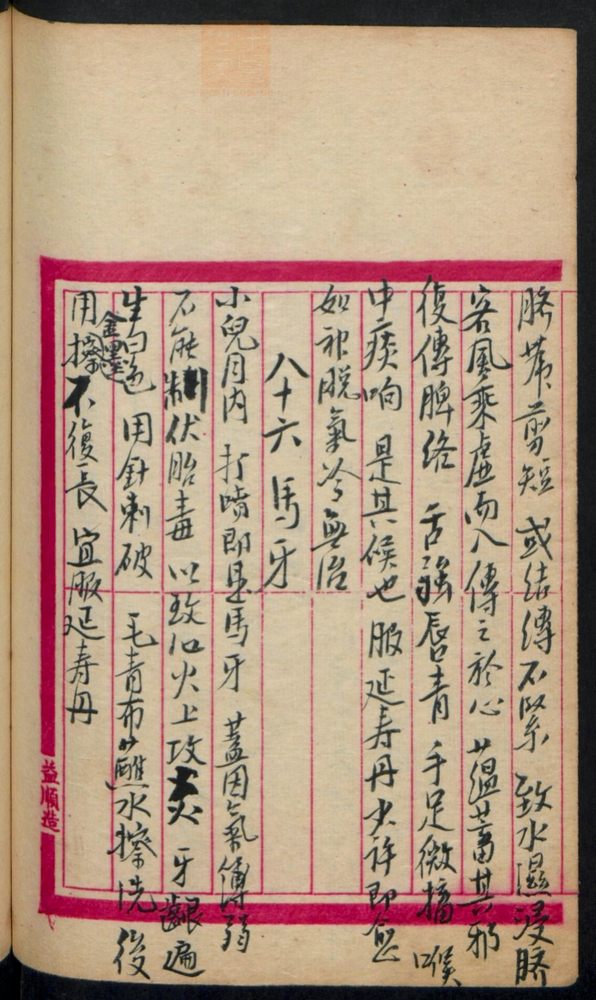 臍带剪短　或结缚不緊　致水濕浸臍
客風乘虚而入傳之於心　藴蓄其邪
復傳脾络　舌强唇青　手足微搐　喉
中痰响　是其候也　服延寿丹少许即愈
如神脱氣冷無治
八十六　馬牙
小兒月内　打嚏即是馬牙　蓋因氣傳弱
不能制伏胎毒　以致心火上攻　牙齦遍
生白色　用針刺破　毛青布蘸水擦洗　後
用金墨擦　不復長　宜服延寿丹
益順造